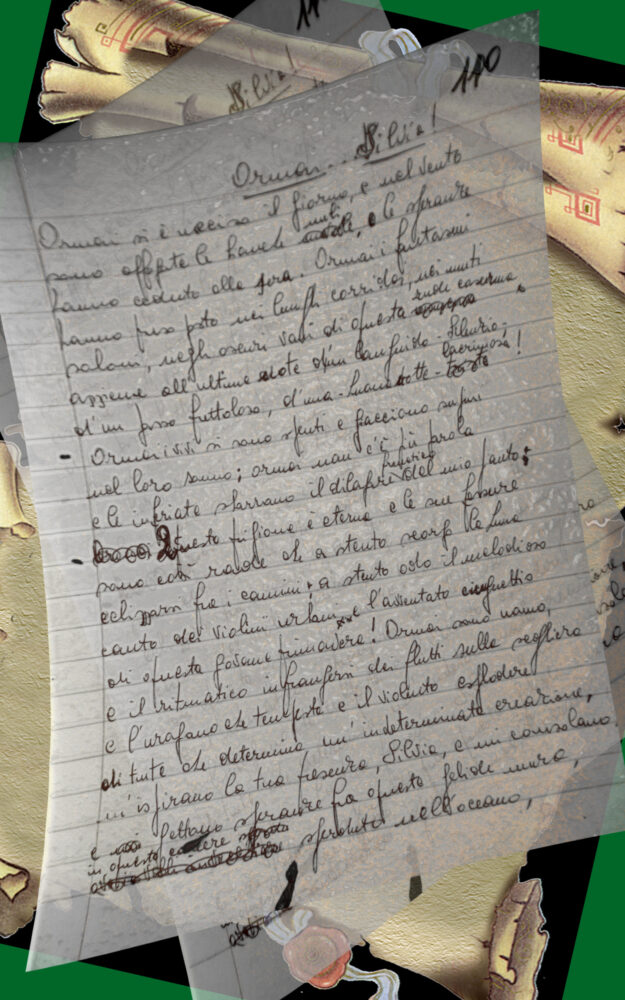 110
Ormai... Silvia!
Ormai si è ucciso il giorno, e nel vento
sono le muti e le speranze
hanno ceduto alla sera. Ormai i fantasmi
hanno preso posto nei lunghi corridoi, nei muti
saloni, negli oscuri vani di questa rude caserma
assieme all'ultime note d'un languido-Silenzio-
d'un passo frettoloso, d'una-buona notte-lacrimosa!
Ormai i vivi si sono spenti e giacciono supini
nel loro sonno; ormai non c'è più parola
e le sbarrano il frenetico del mio
Questa prigione è eterna e le sue fessure
sono così rade che a stento scorgo la luna
eclissarsi fra i camini; a stento odo il melodioso
canto dei violini urbani e l'assentato cinguettio
di questa giovane primavera! Ormai sono vano,
e il ritmatico infrangersi dei flutti sulla scogliera
e l'uragano che tempesta e il violento esplodere
di tute che determina un'indeterminata creazione,
m'ispirano la tua presenza, Silvia, e mi consolano
e gettano speranze fra queste gelide mura,
in questo sperduto nell'oceano,